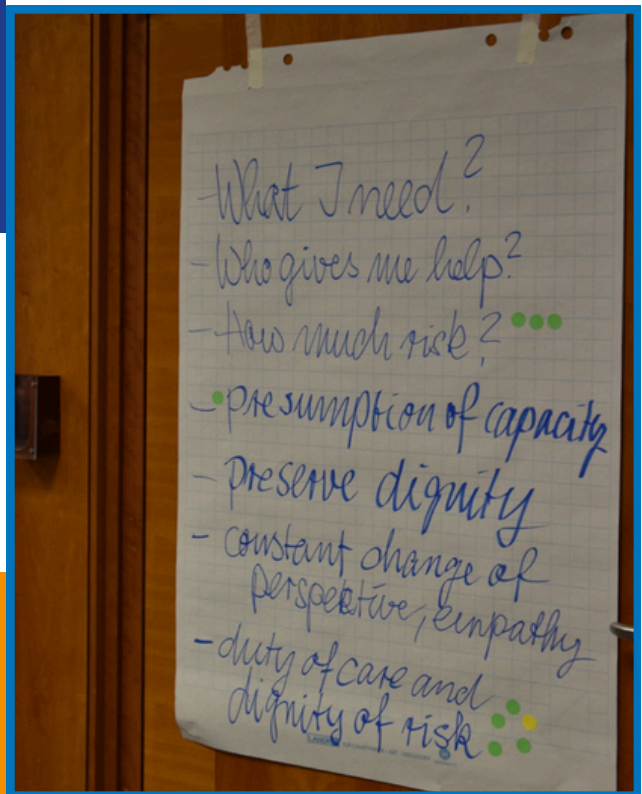 - What I need?
- Who gives me help?
- How much risk?
- presumption of capacity
- preserve dignity
- constant change of
perspektive, empathy
- duty of care and
dignity of risk